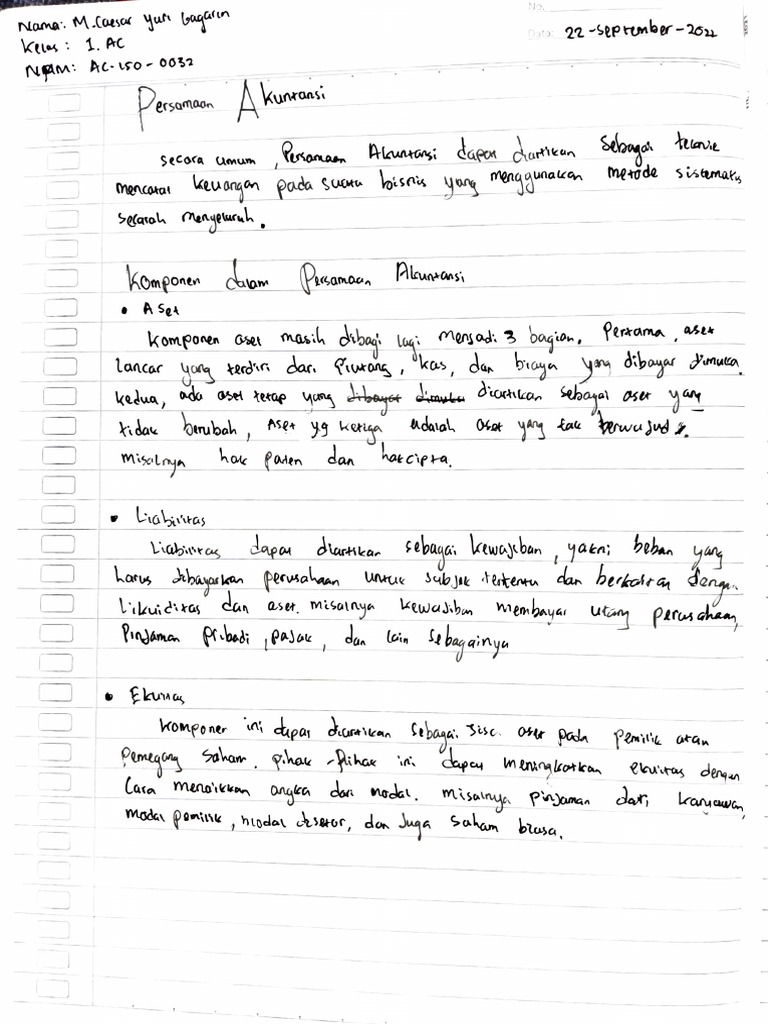 Nama: M. Caesar Yuri Gagarin
No.
Kelas: 1. AC
Date: 22-September-2022
NPM: AC-150-0032
Persamaan Akuntansi
secara umum, Persamaan Akuntansi dapat diartikan sebagai teknik
mencatat keuangan pada suatu bisnis yang menggunakan metode sistematis
secarah menyeluruh.
Komponen dalam Persamaan Akuntansi
• Aset
Komponen aset masih dibagi lagi menjadi 3 bagian. Pertama, aset
lancar yang terdiri dari Piutang, kas, dan biaya yang dibayar dimuka.
kedua, ada aset tetap yang dibayar dimuka diartikan sebagai aset yang
tidak berubah, Aset yg ketiga adalah aset yang tak berwujud.
misalnya hak paten dan hak cipta.
• Liabilitas
Liabilitas dapat diartikan sebagai kewajiban, yakni beban yang
harus dibayarkan perusahaan untuk subjek tertentu dan berkaitan dengan
likuiditas dan aset. misalnya kewajiban membayar utang perusahaan,
Pinjaman pribadi, pajak, dan lain sebagainya
• Ekuitas
Komponen ini dapat diartikan sebagai sisa aset pada pemilik atau
Pemegang saham. pihak-Pihak ini dapat meningkatkan ekuitas dengan
Cara menaikkan angka dari modal. misalnya pinjaman dari karyawan,
modal pemilik, modal disetor, dan Juga saham biasa.